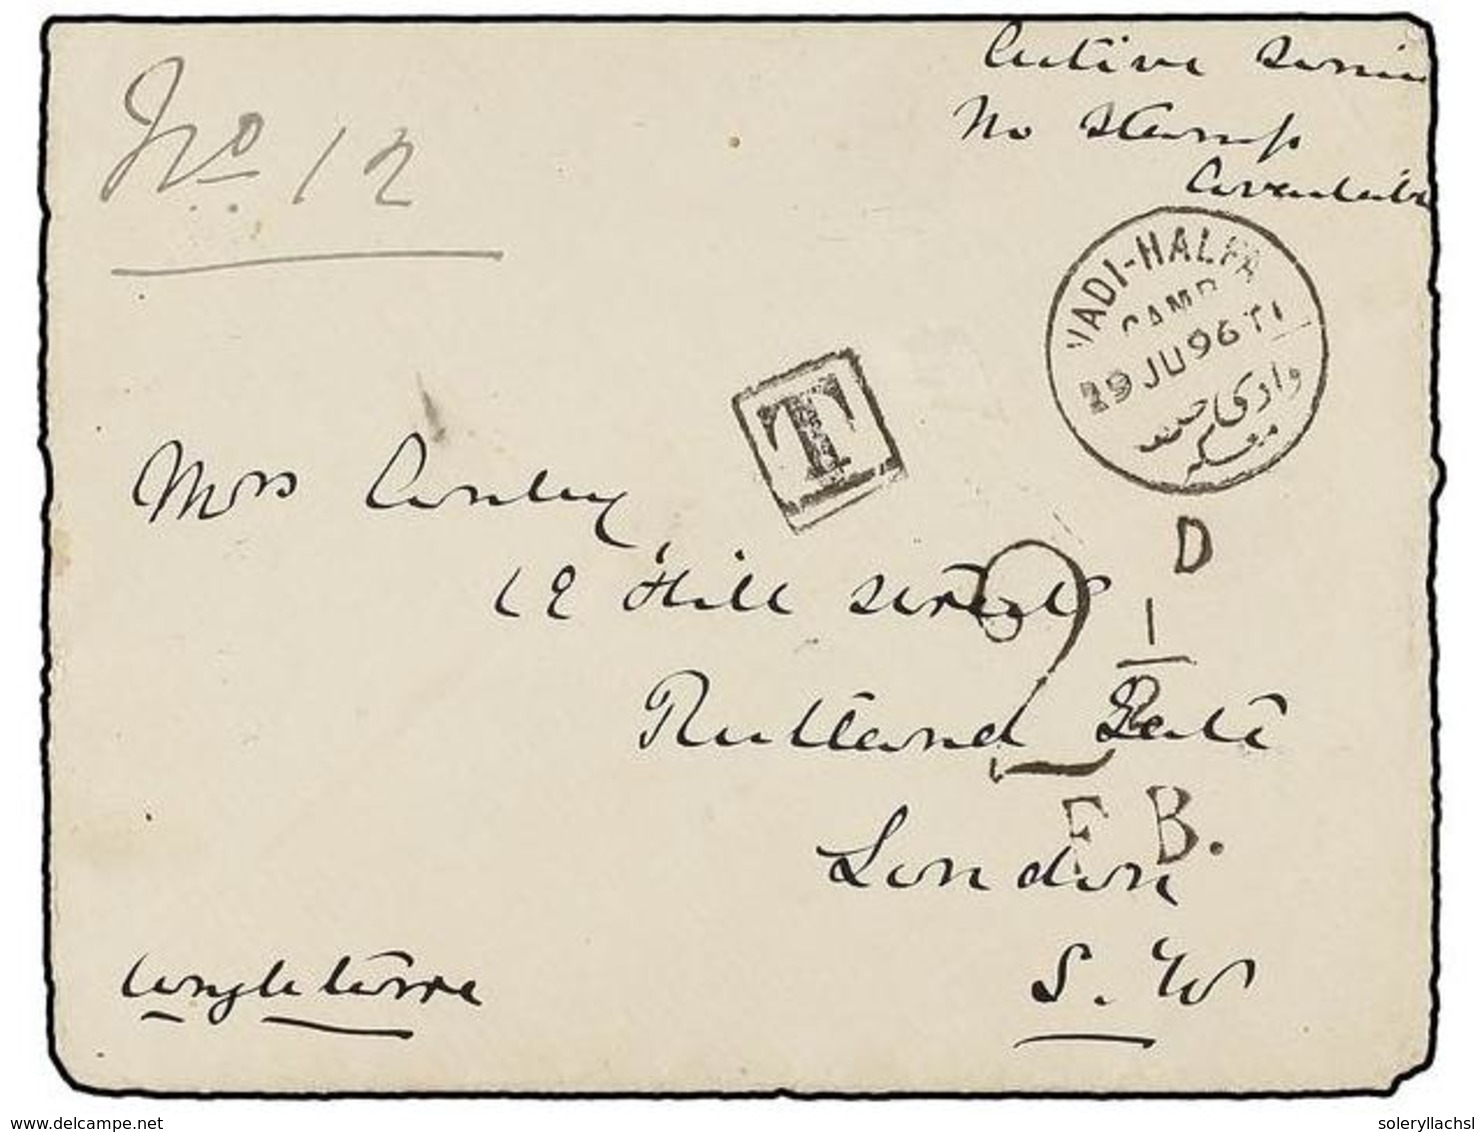 Active Service
No Stamps
Available
No 12
WADI-HALFA
CAMP
29 JU 96 T1
وادى حلفا
معسكر
T
Mrs Conley,
12 Hill Street
D
1
2
Rutland Gate
F. B.
London
S. W
Angleterre
www.delcampe.net
soleryllachsl